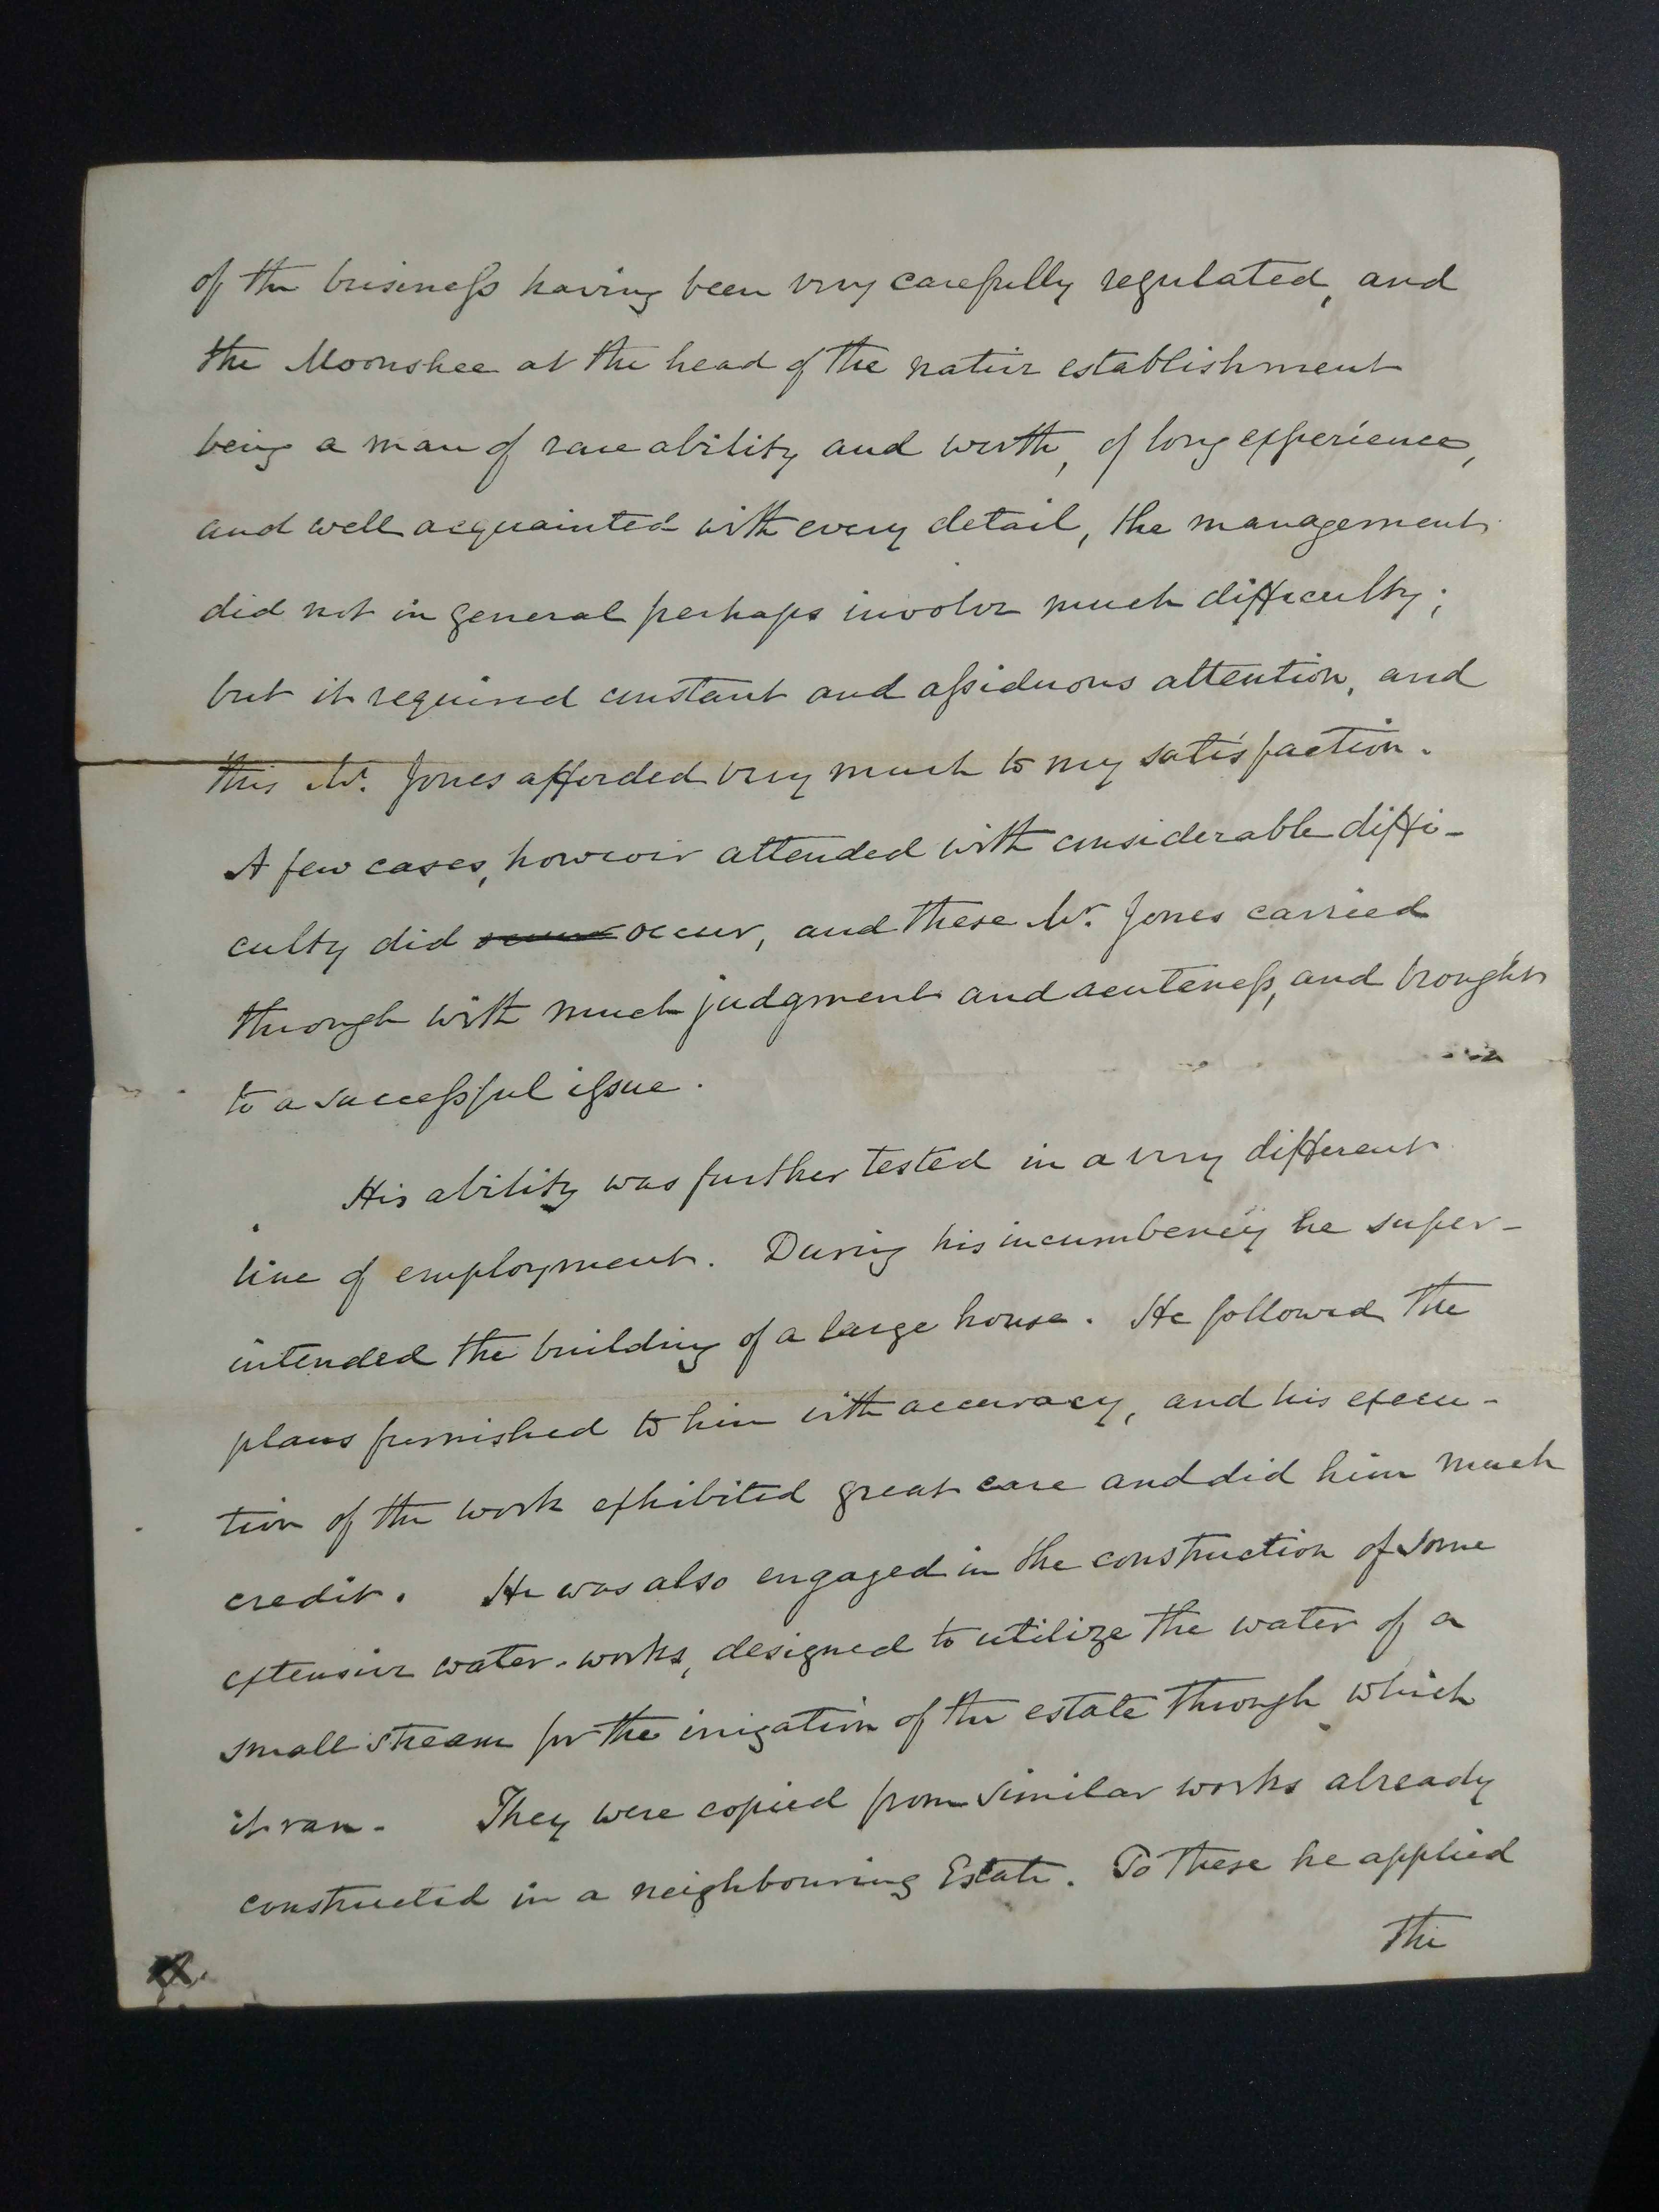 of the business having been very carefully regulated, and
the Moonshee at the head of the native establishment
being a man of rare ability and worth, of long experience,
and well acquainted with every detail, the management
did not in general perhaps involve much difficulty;
but it required constant and assiduous attention, and
this Mr. Jones afforded very much to my satisfaction.
A few cases, however attended with considerable diffi-
culty did occur, and these Mr. Jones carried
through with much judgment and acuteness, and brought
to a successful issue.
His ability was further tested in a very different
line of employment. During his incumbency he super-
intended the building of a large house. He followed the
plans furnished to him with accuracy, and his execu-
tion of the work exhibited great care and did him much
credit. He was also engaged in the construction of some
extensive water-works, designed to utilize the water of a
small stream for the irrigation of the estate through which
it ran. They were copied from similar works already
constructed in a neighbouring Estate. To these he applied
the